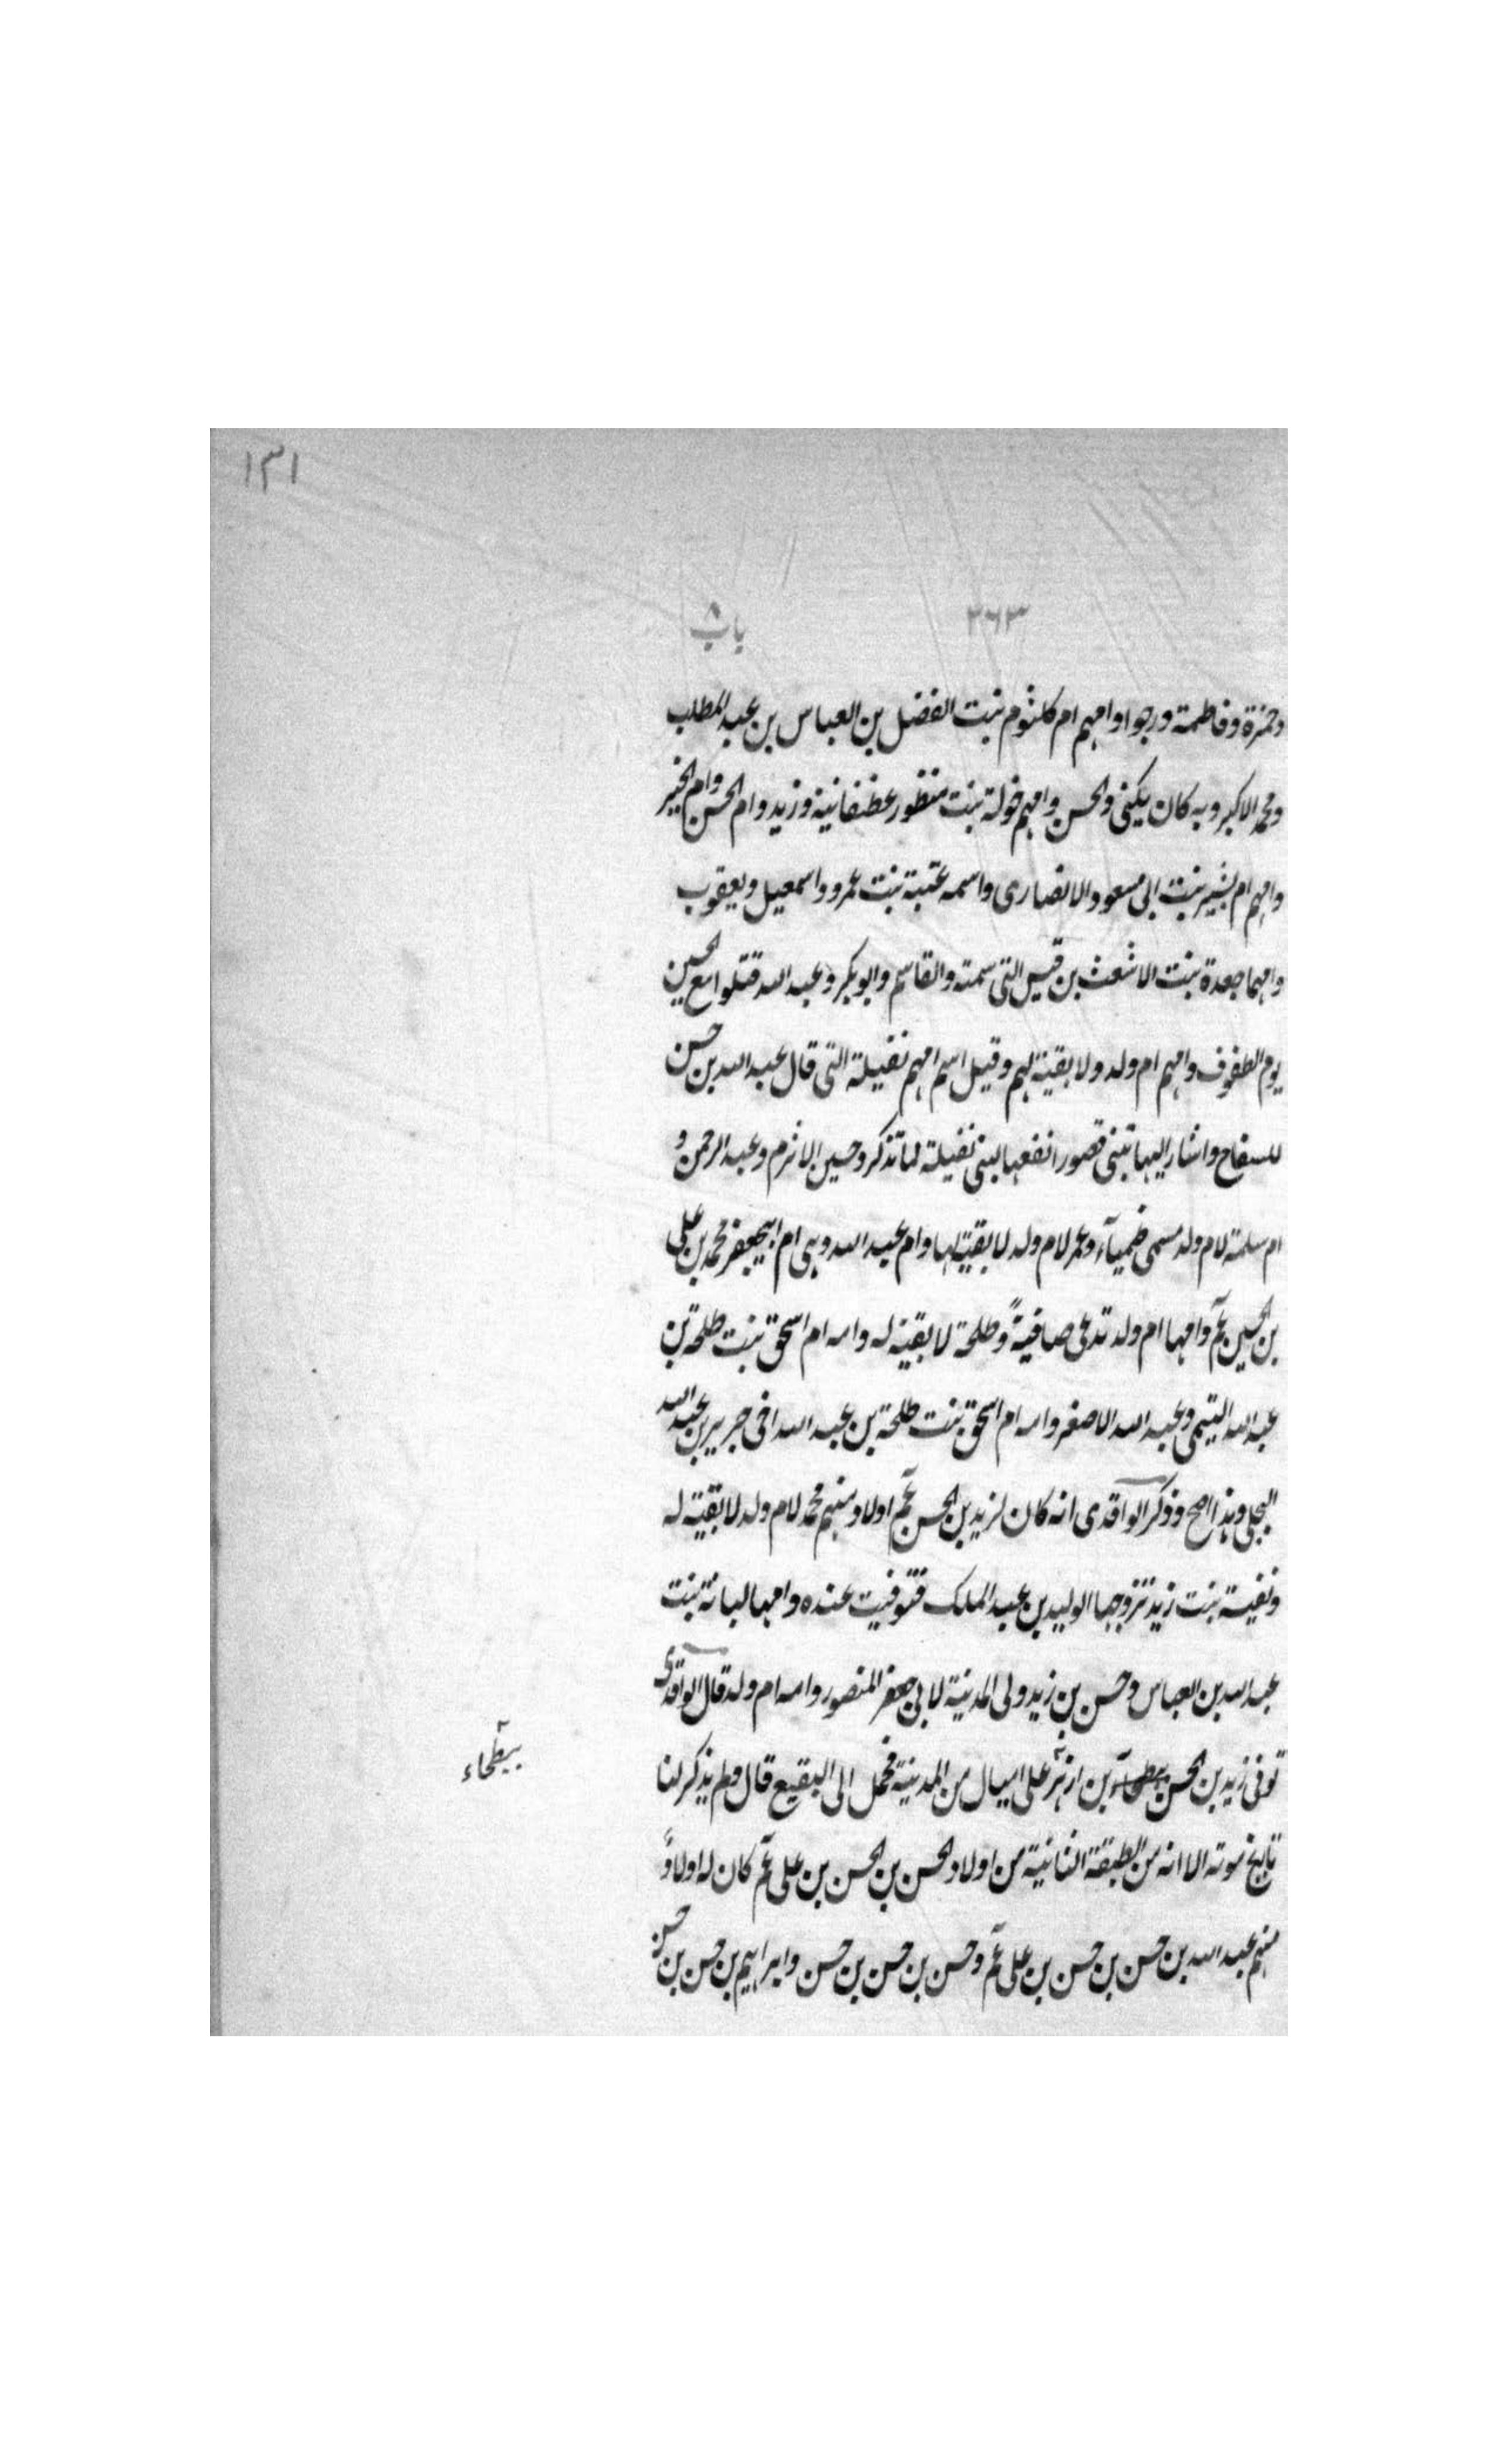 ١٣١
٢٦٣ باب ٨
وحمزة وفاطمة ورجوا وامهم ام كلثوم بنت الفضل بن العباس بن عبد المطلب
ومحمد الاكبر وبه كان يكنى والحسن وامهم خولة بنت منظور غطفانية وزيد وام الحسن وام الخير
وامهم ام بشير بنت ابى مسعود الانصارى واسمه عتبة بنت عمرو واسمعيل ويعقوب
وامهما جعدة بنت الاشعث بن قيس التى سمته والقاسم وابو بكر وعبد الله قتلوا مع الحسين
يوم الطفوف وامهم ام ولد ولا بقية لهم وقيل اسم امهم نفيلة التى قال عبد الله بن حسن
للسفاح واشار اليها تبنى قصورا نفعها لبنى نفيلة لما تذكر وحسين الاثرم وعبد الرحمن و
ام سلمة لام ولد سمى ضمياء وعمر لام ولد لا بقية لها وام عبد الله وهى ام ابيجعفر محمد بن على
بن الحسين عم وامها ام ولد تدعى صافية وطلحة لا بقية له وامه ام اسحق بنت طلحة بن
عبد الله التيمى وعبد الله الاصغر وامه ام اسحق بنت طلحة بن عبد الله اخى جرير بن عبد الله
البجلى وهذا اصح وذكر الواقدى انه كان لزيد بن الحسن عم اولاد منهم محمد لام ولد لا بقية له
ونفيسة بنت زيد تزوجها الوليد بن عبد الملك فتوفيت عنده وامها لبانة بنت
عبد الله بن العباس وحسن بن زيد ولى المدينة لابى جعفر المنصور وامه ام ولد قال الواقدى
توفى زيد بن الحسن بن ازهر على اميال من المدينة فحمل الى البقيع قال ولم يذكر لنا
ببطحاء
تاريخ موته الا انه من الطبقة الثانية من اولاد الحسن بن الحسن بن على عم كان له اولاد
منهم عبد الله بن حسن بن حسن بن على عم وحسن بن حسن بن حسن وابراهيم بن حسن بن حسن